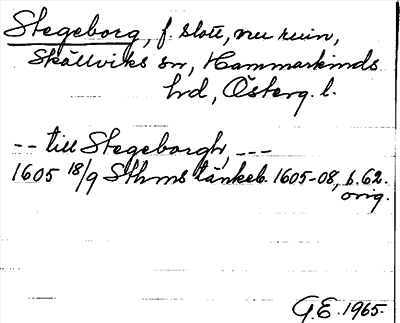 Stegeborg, f. slott, nu ruin,
Skällviks sn, Hammarkinds
hd, Österg. l.
-- till Stegeborgh, ---
1605 18/9 Sthms tänkeb. 1605-08, b. 62.
orig.
G.E. 1965.